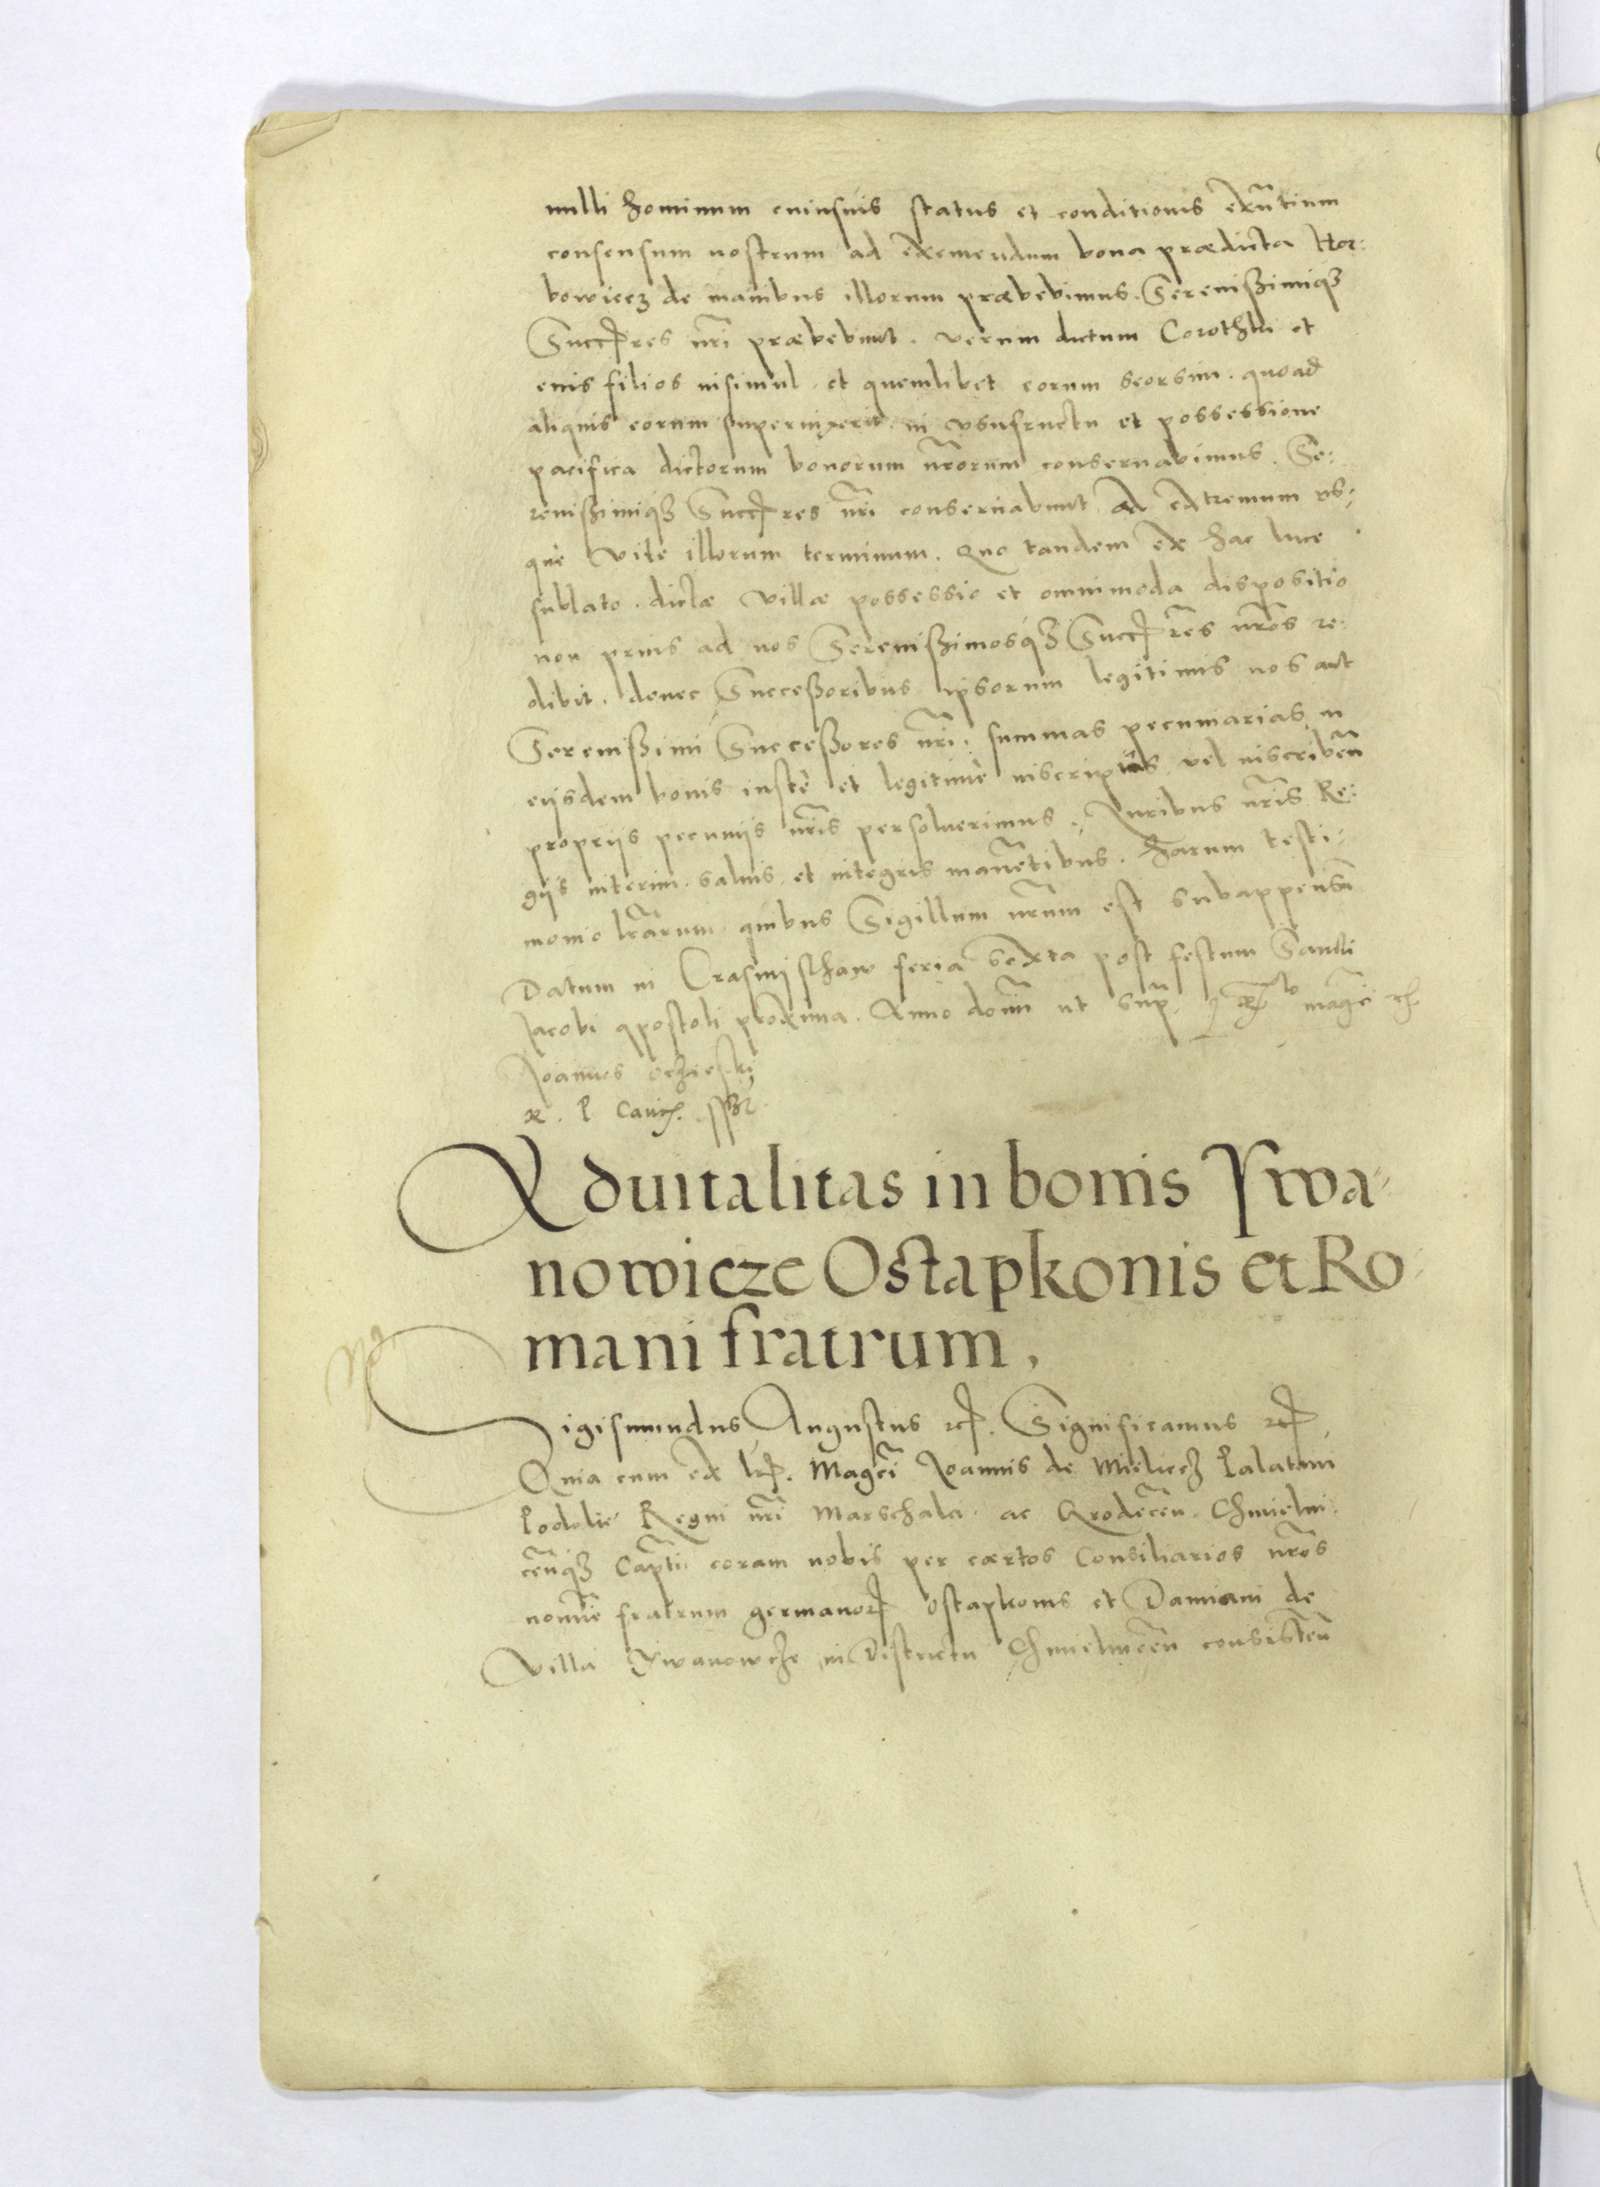 nulli hominum cuiusuis status et conditionis exñtium
consensum nostrum ad eximendum bona prædicta Hor:
bowiecz de manibus illorum præbebimus. Serenißimiqȝ
Succr̃es nr̃i præbebunt. verum dictum Corothki et
eius filios insimul et quemlibet eorum seorsim. quoad
aliquis eorum superuixerit in vsufructu et possessione
pacifica dictorum bonorum nr̃orum conseruabimus. Se:
renißimiqȝ Succr̃es nr̃i conseruabunt ad extremum vs:
què vite illorum terminum. Quo tandem ex hac luce
sublato. dictæ villæ possessio et omnimoda dispositio
non prius ad nos Serenißimosqȝ Succr̃es nr̃os re:
dibit. donec Succeßoribus ipsorum legitimis nos aut
Serenißimi Succeßores nr̃i. summas pecuniarias in
eijsdem bonis iustè et legitimè inscriptas vel inscribeñ
proprijs pecunijs nr̃is persoluerimus. Iuribus nr̃is Re:
gijs interim saluis et integris manẽtibus. Harum testi:
monio lr̃arum quibus Sigillum nr̃um est subappensũ
Datum in Crasnijsthaw feria sexta post festum Sancti
Jacobi apostoli proxima. Anno domĩ ut sup̃
Joannes Oczieski
R. P. Canc.
Aduitalitas in bonis Ywa-
nowicze Ostapkonis et Ro-
mani fratrum,
Sigismundus Augustus etc. Significamus etc.
Quia cum ex lr̃. Magc̃i Joannis de Mielecz Palatini
Podolie Regni nr̃i Marschalci ac Grodeceñ. Chmielni:
ceñqȝ Capt̃i coram nobis per certos Consiliarios nr̃os
nomĩe fratrum germanorũ Ostapkonis et Damiani de
villa Ywanowcze in Districtu Chmielniceñ consisteñ